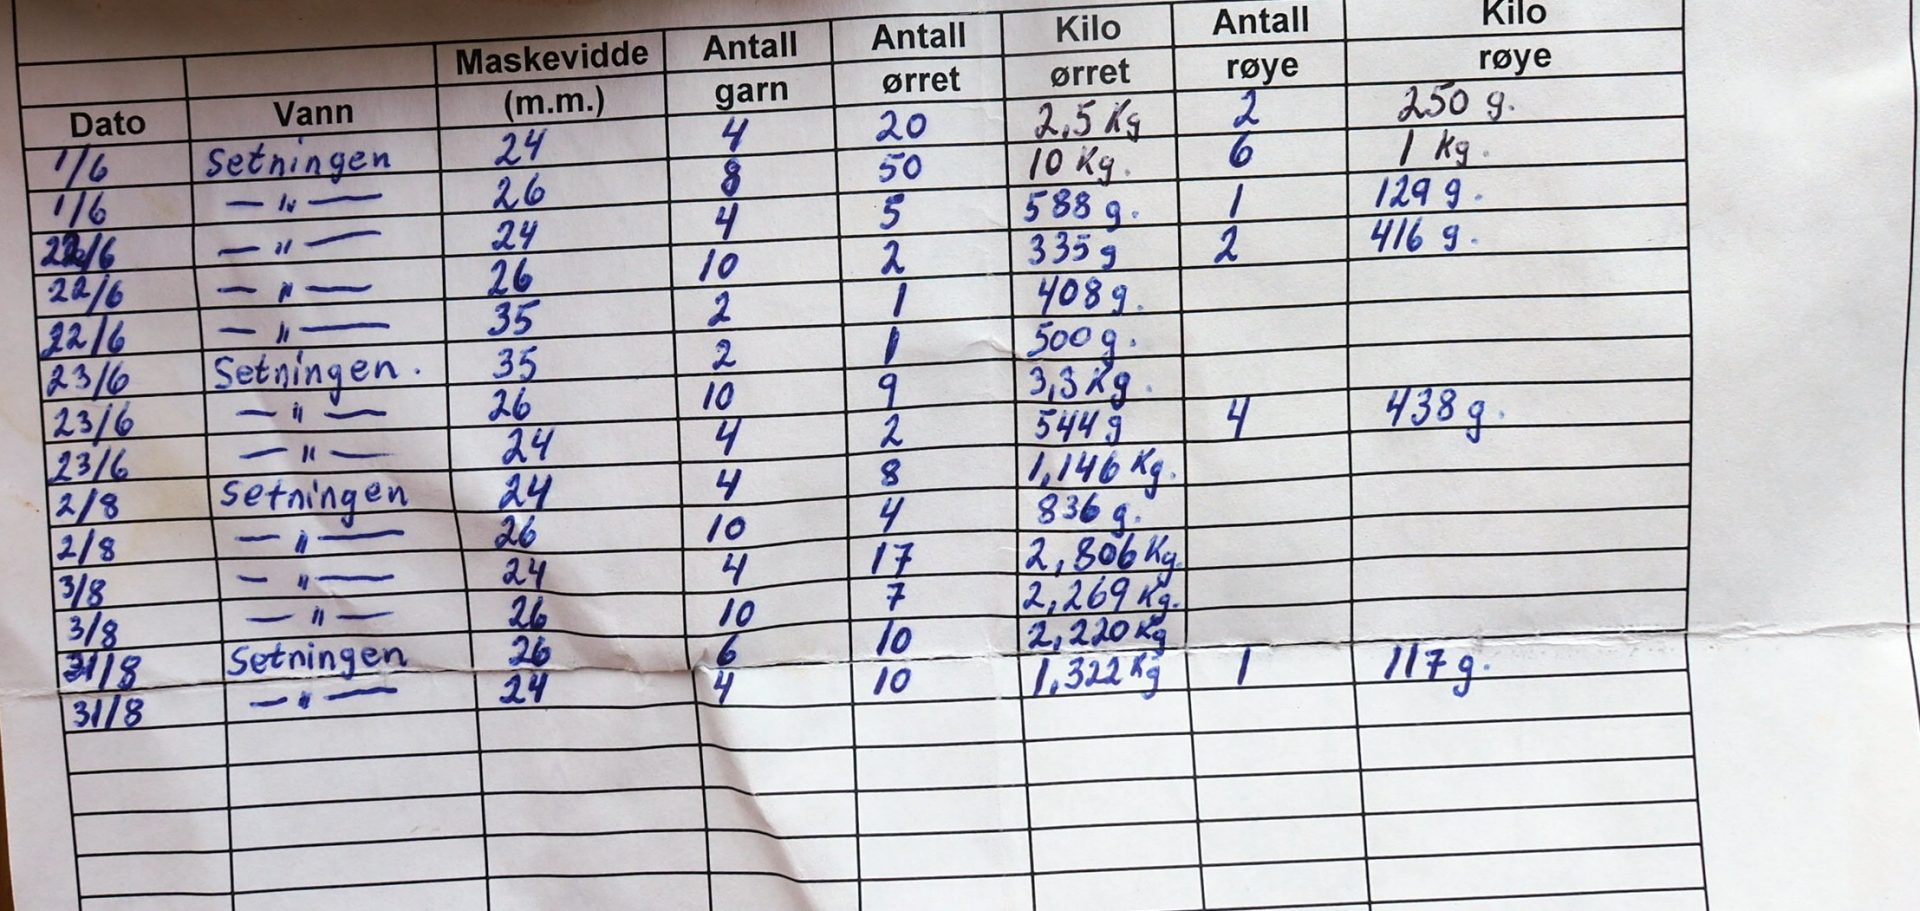 Dato Vann Maskevidde (m.m.) Antall garn Antall ørret Kilo ørret Antall røye Kilo røye
1/6 Setningen 24 4 20 2,5 Kg 2 250 g.
1/6 — " — 26 8 50 10 Kg. 6 1 Kg.
22/6 — " — 24 4 5 588 g. 1 129 g.
22/6 — " — 26 10 2 335 g 2 416 g.
22/6 — " — 35 2 1 408 g.
23/6 Setningen. 35 2 1 500 g.
23/6 — " — 26 10 9 3,3 Kg.
23/6 — " — 24 4 2 544 g 4 438 g.
2/8 Setningen 24 4 8 1,146 Kg.
2/8 — " — 26 10 4 836 g.
3/8 — " — 24 4 17 2,806 Kg.
3/8 — " — 26 10 7 2,269 Kg.
31/8 Setningen 26 6 10 2,220 Kg
31/8 — " — 24 4 10 1,322 Kg 1 117 g.